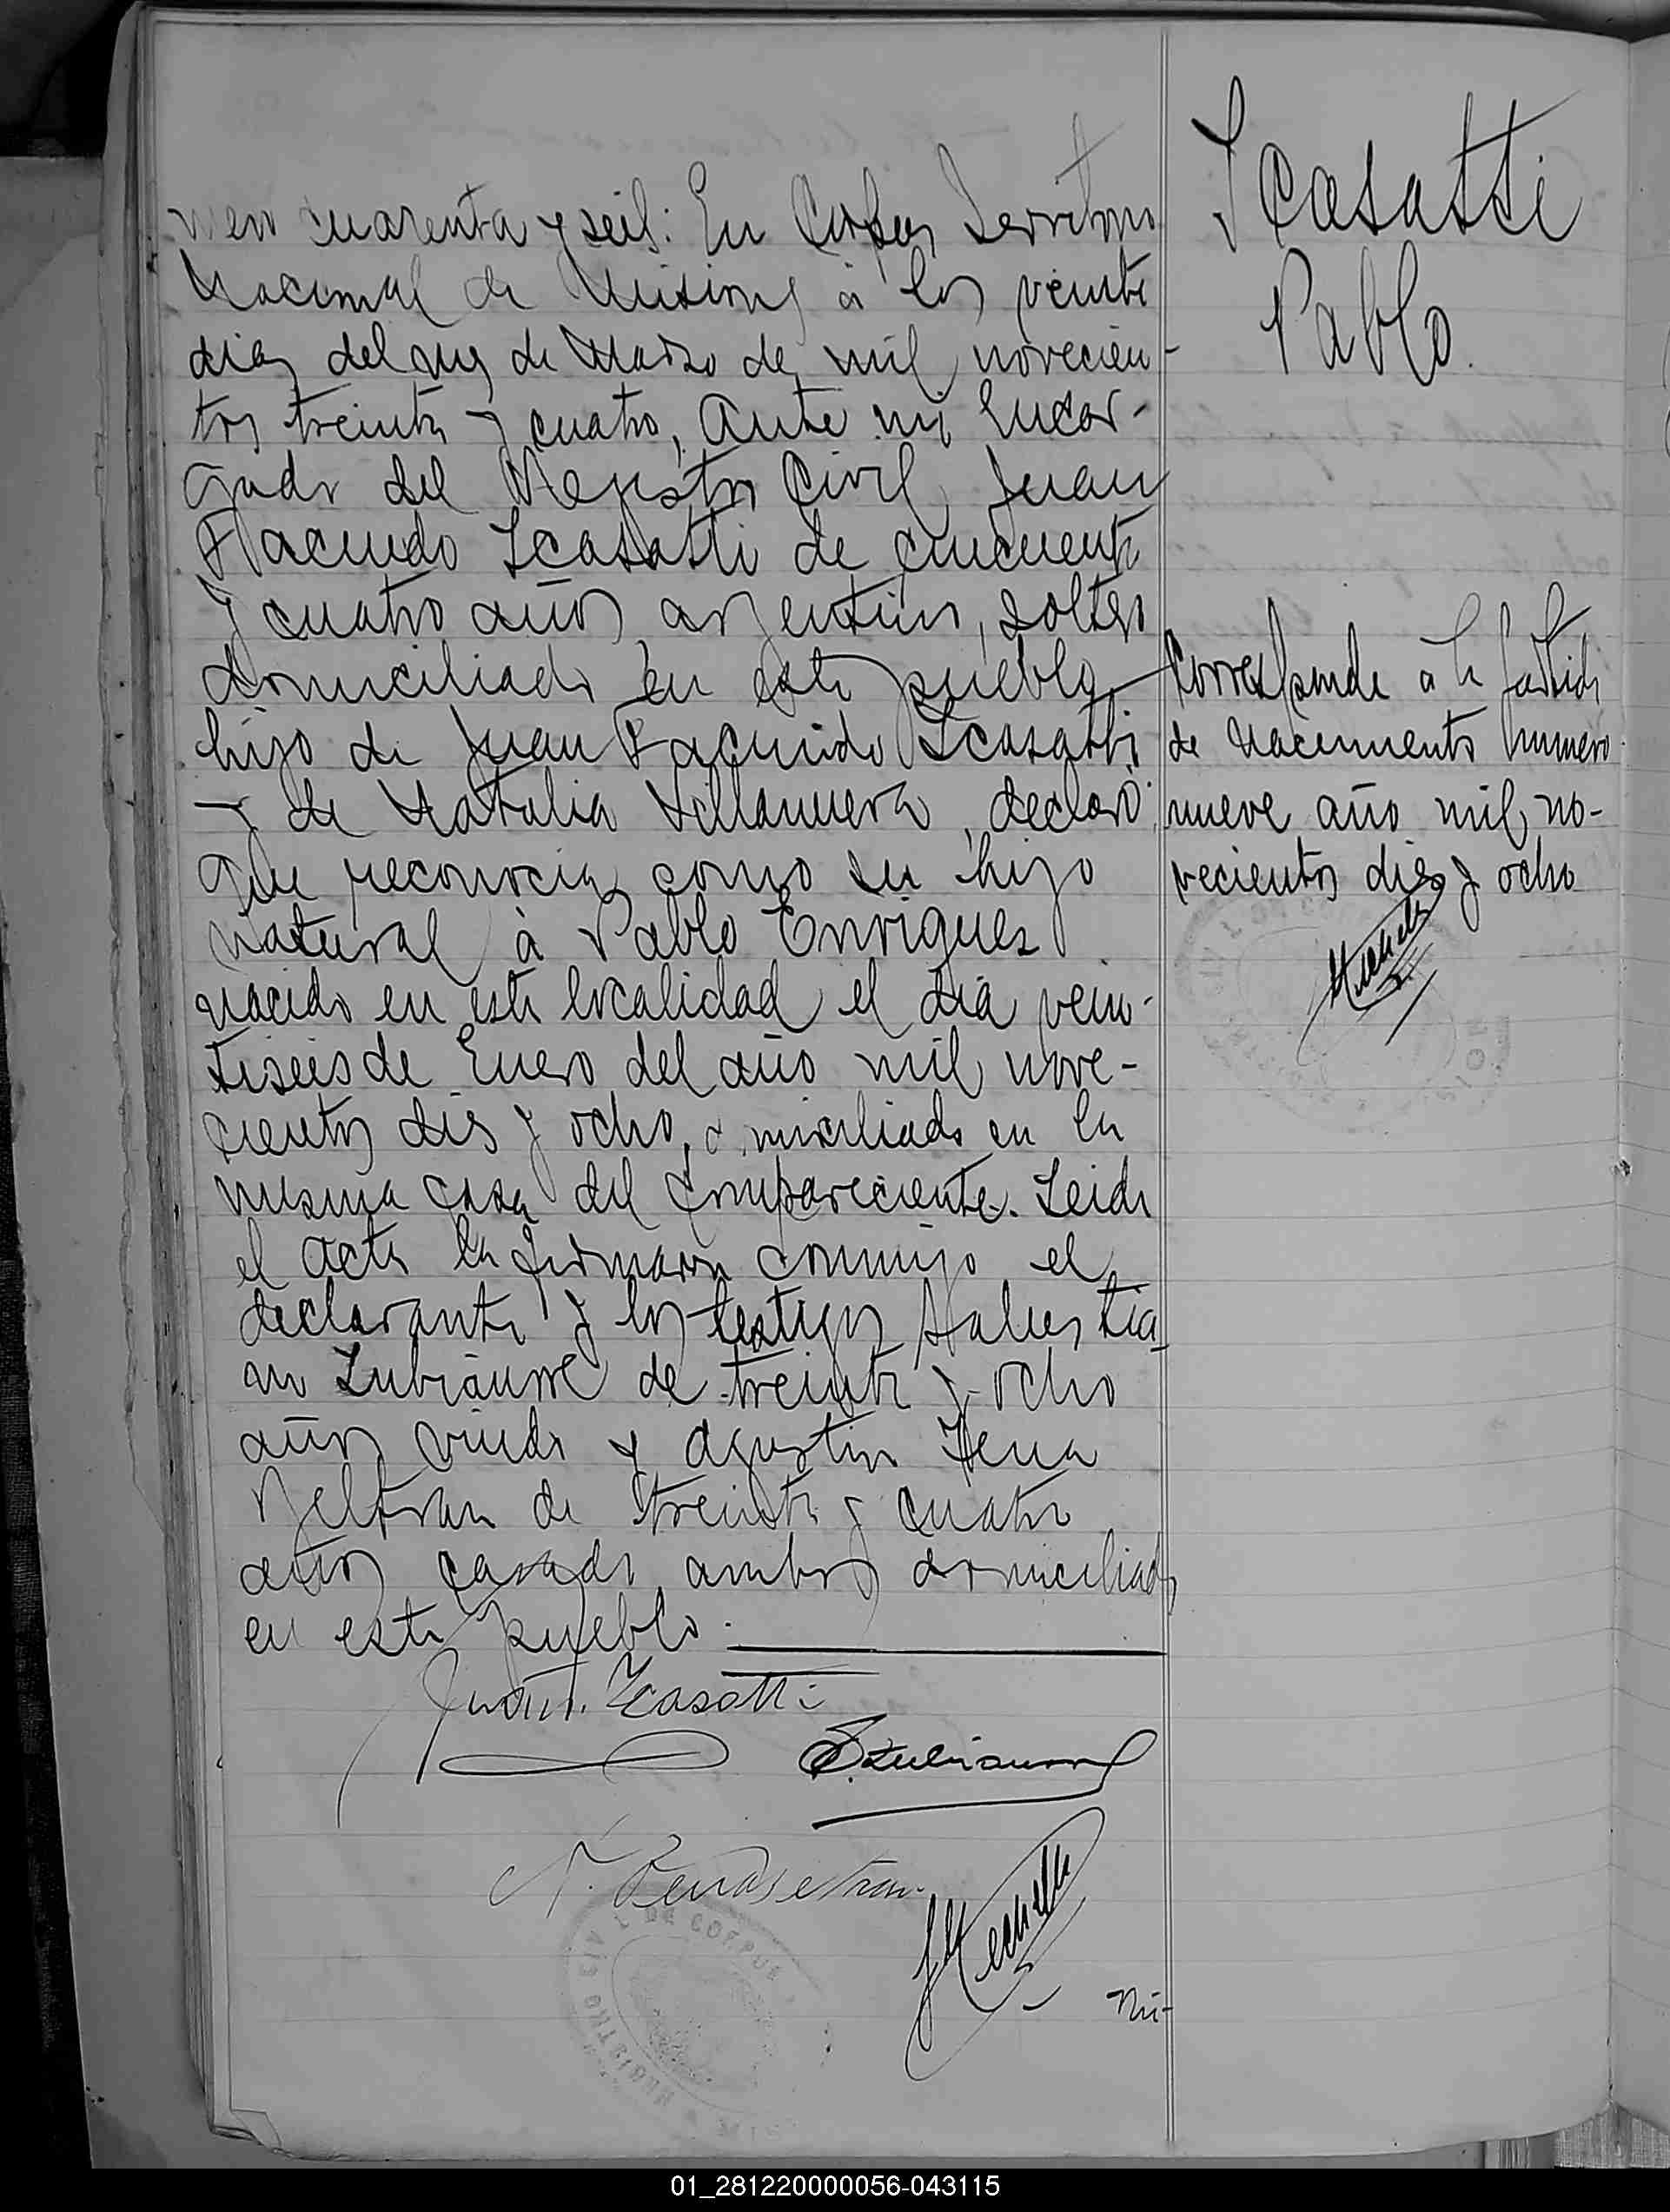 mero cuarenta y seis: En Corpus Territorio
Nacional de Misiones á los veinte
dias del mes de Marzo de mil novecien-
tos treinta y cuatro, Ante mi, Encar-
gado del Registro Civil, Juan
Facundo Icasatti de cincuenta
y cuatro años, argentino, soltero
domiciliado en este pueblo,
hijo de Juan Facundo Icasatti
y de Natalia Villanueva, declaró
que reconocia como su hijo
natural á Pablo Enriquez
nacido en esta localidad el dia vein-
tiseis de Enero del año mil nove-
cientos diez y ocho, domiciliado en la
misma casa del compareciente. Leida
el acta la firmaron conmigo el
declarante y los testigos Salustia-
no Zubiaurre de treinta y ocho
años viudo y Agustin Pena
Beltran de treinta y cuatro
años casado ambos domiciliados
en este pueblo.
Juan F. Icasatti
S. Zubiaurre
A. Pena Beltran
REGISTRO CIVIL DE CORPUS
Nú-
Icasatti
Pablo.
Corresponde á la partida
de nacimiento numero
nueve año mil no-
vecientos diez y ocho
01_281220000056-043115